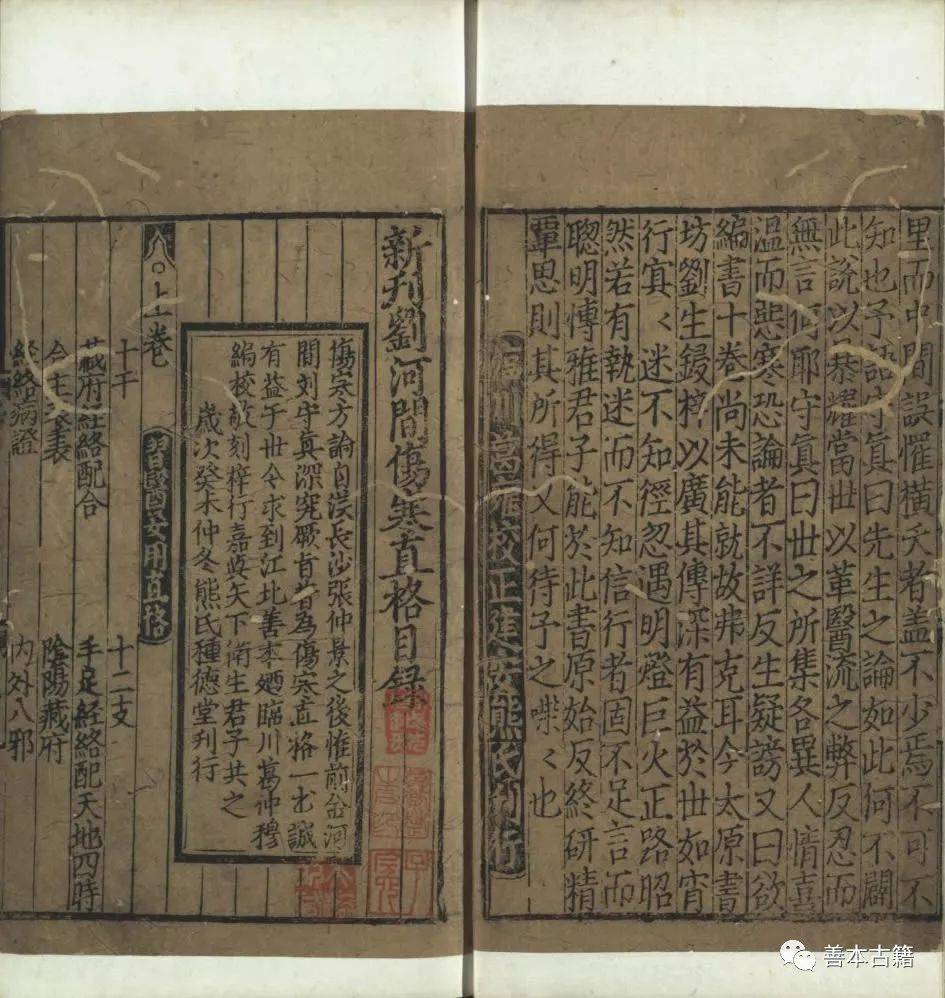 里而中間誤罹橫夭者盖不少焉不可不
知也予語守眞曰先生之論如此何不闢
此說以暴耀當世以革醫流之弊反忍而
無言何耶守眞曰世之所集各異人情喜
溫而惡寒恐論者不詳反生疑謗又曰欲
編書十卷尚未能就故弗克耳今太原書
坊劉生鋟梓以廣其傳深有益於世如宵
行冥〻迷不知徑忽遇明燈巨火正路昭
然若有執迷而不知信行者固不足言而
聦明博雅君子能於此書原始反終研精
覃思則其所得又何待予之〻也
川葛雍校正建安熊氏刊行
新刊劉河間傷寒直格目録
傷寒方論自漢長沙張仲景之後惟前金河
間刘守眞深究厥旨著為傷寒直格一书誠
有益于世今求到江北善本廼臨川葛仲穆
編校敬刻梓行嘉與天下衛生君子共之
歲次癸未仲冬熊氏種德堂刊行
○上卷
習醫要用直格
十干 十二支
藏府經絡配合 手足經絡配天地四時
陰陽藏府
經絡病證 内外八邪
善本古籍